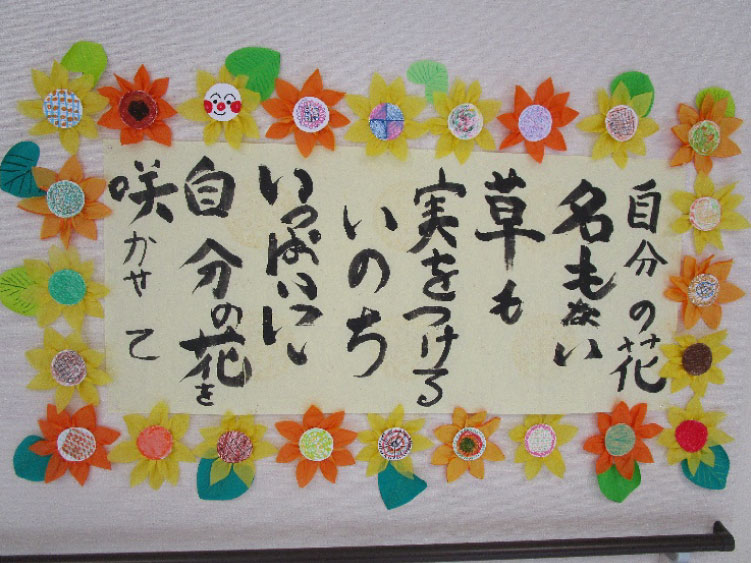 自分の花
名もない
草も
実をつける
いのち
いっぱいに
自分の花を
咲かせて